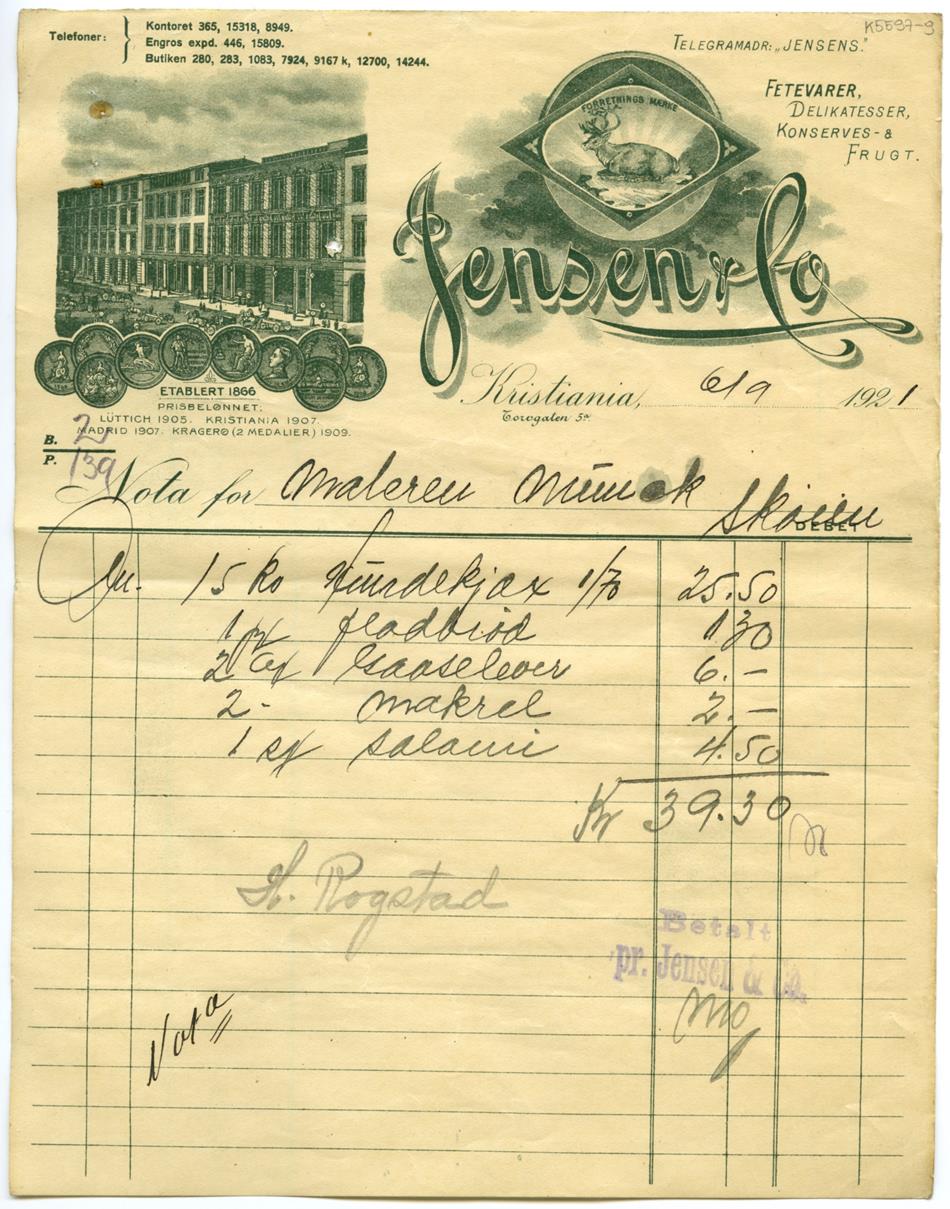 K5597-9
Telefoner:
Kontoret 365, 15318, 8949.
Engros expd. 446, 15809.
Butiken 280, 283, 1083, 7924, 9167 k, 12700, 14244.
TELEGRAMADR: „JENSENS."
FETEVARER,
DELIKATESSER,
KONSERVES- &
FRUGT.
FORRETNINGS MÆRKE
Jensen & Co
ETABLERT 1866
PRISBELØNNET:
LÜTTICH 1905. KRISTIANIA 1907.
MADRID 1907. KRAGERØ (2 MEDALIER) 1909.
Kristiania, 6/9 1921
Torvgaten 5a
B. 2
P. 139
Nota for Maleren Munck Skøien
DEBET
15 ko Hundekjax 1/70 25.50
1 pk fladbrød 1.30
2 Gaaselever 6.-
2 - Makrel 2.-
1 Salami 4.50
Kr 39.30
H. Rogstad
Betalt
pr. Jensen & Co.
Nota